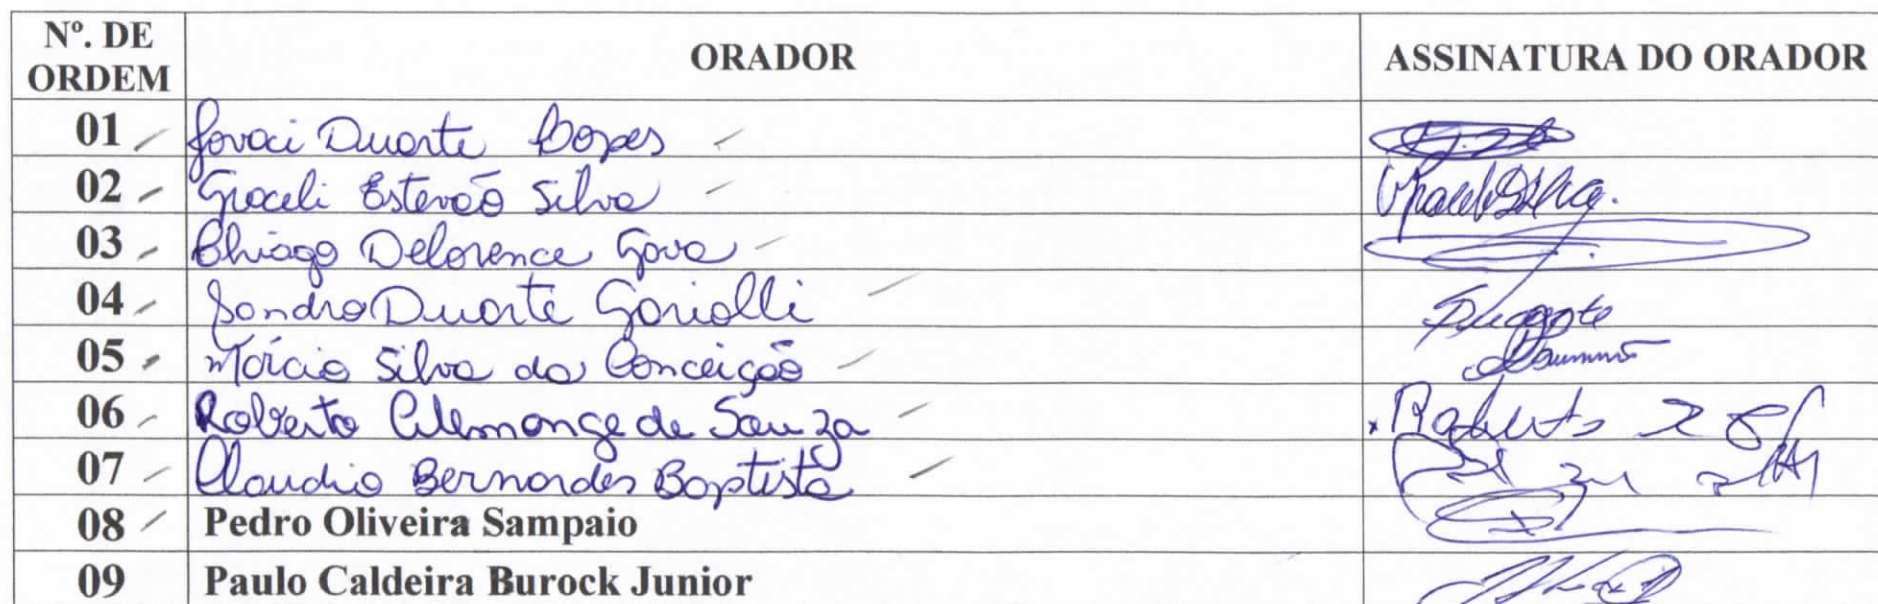 Nº. DE ORDEM ORADOR ASSINATURA DO ORADOR
01 Jovaci Duarte Lopes
02 Graceli Estevão Silva
03 Thiago Delorence Gava
04 Sandro Duarte Garialli
05 Márcio Silva da Conceição
06 Roberto Clemonge de Souza Roberto
07 Claudio Bernardes Baptista
08 Pedro Oliveira Sampaio
09 Paulo Caldeira Burock Junior